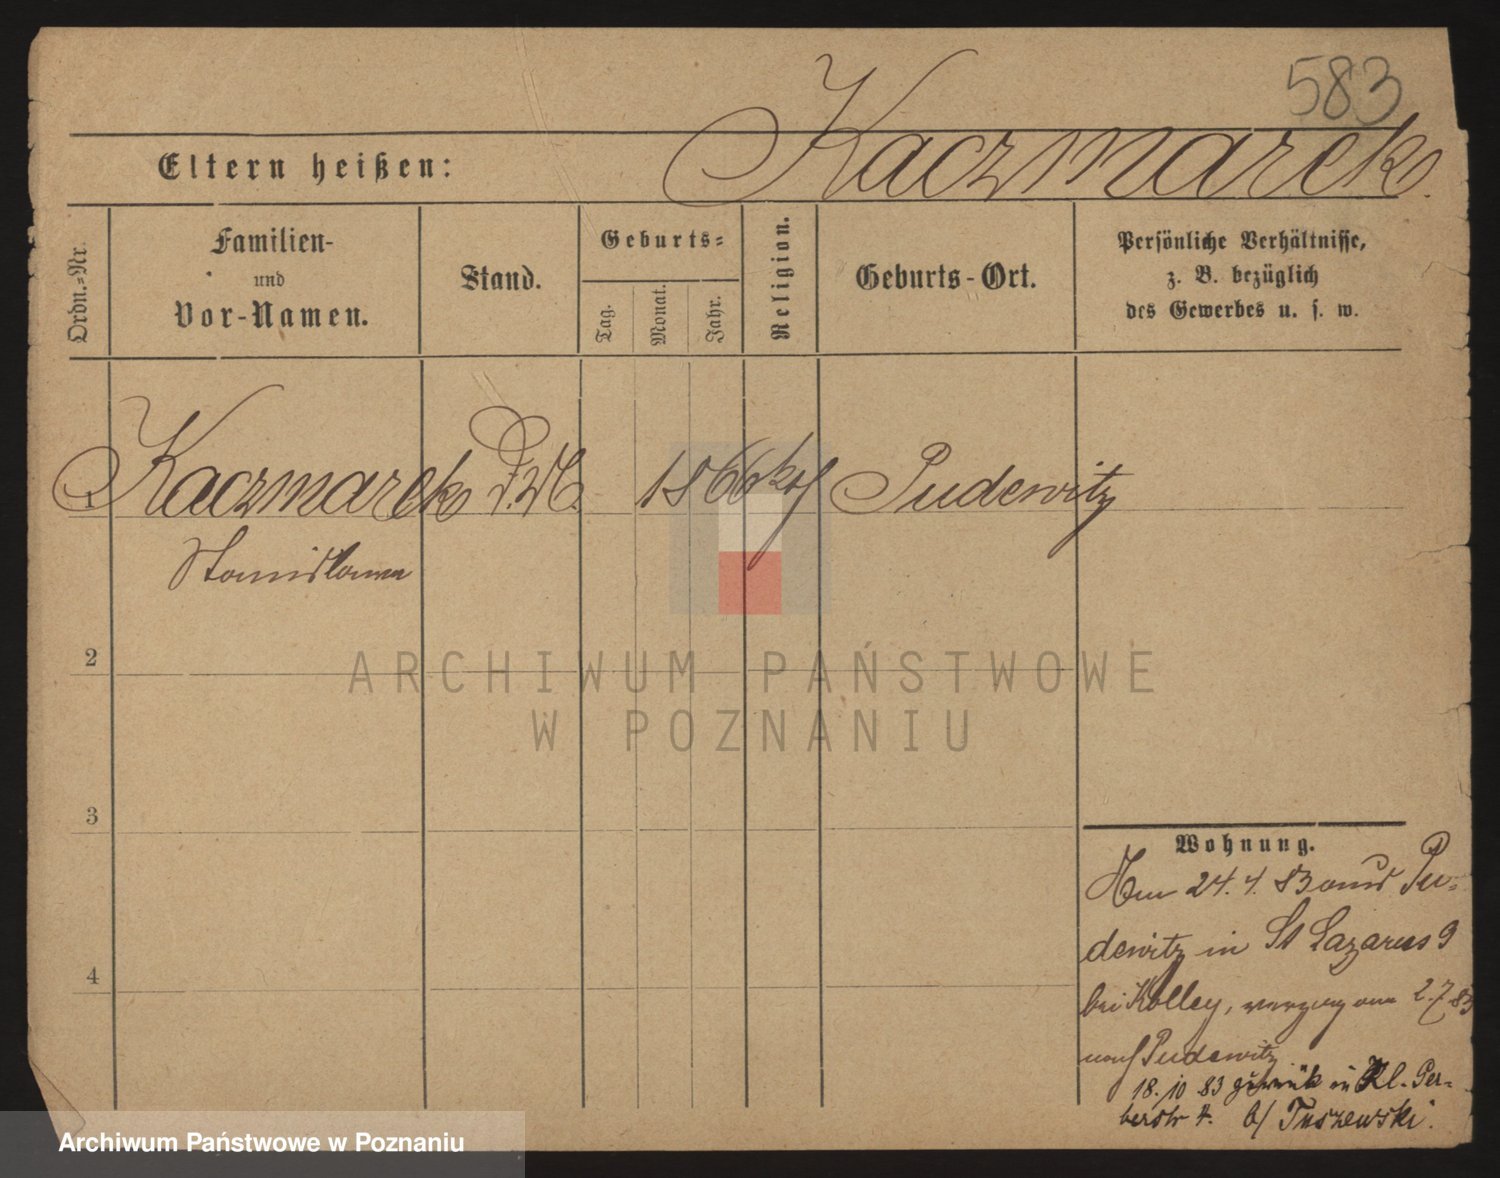 583
Kaczmarek.
Eltern heißen:
Ordn.-Nr.
Familien-
und
Vor-Namen.
Stand.
Geburts-
Tag.
Monat.
Jahr.
Religion.
Geburts-Ort.
Persönliche Verhältnisse,
z. B. bezüglich
des Gewerbes u. s. w.
1 Kaczmarek 1866 kth Pudewitz
Stanislawa
2
ARCHIWUM PAŃSTWOWE
W POZNANIU
3
4
Wohnung.
Am 24. 4. 83 aus Pu-
dewitz in St Lazarus 9
bei Kolley, verzog am 2.7.83
nach Pudewitz
18. 10 83 zurück in Kl. Ger-
berstr 4. b/ Tuszewski.
Archiwum Państwowe w Poznaniu